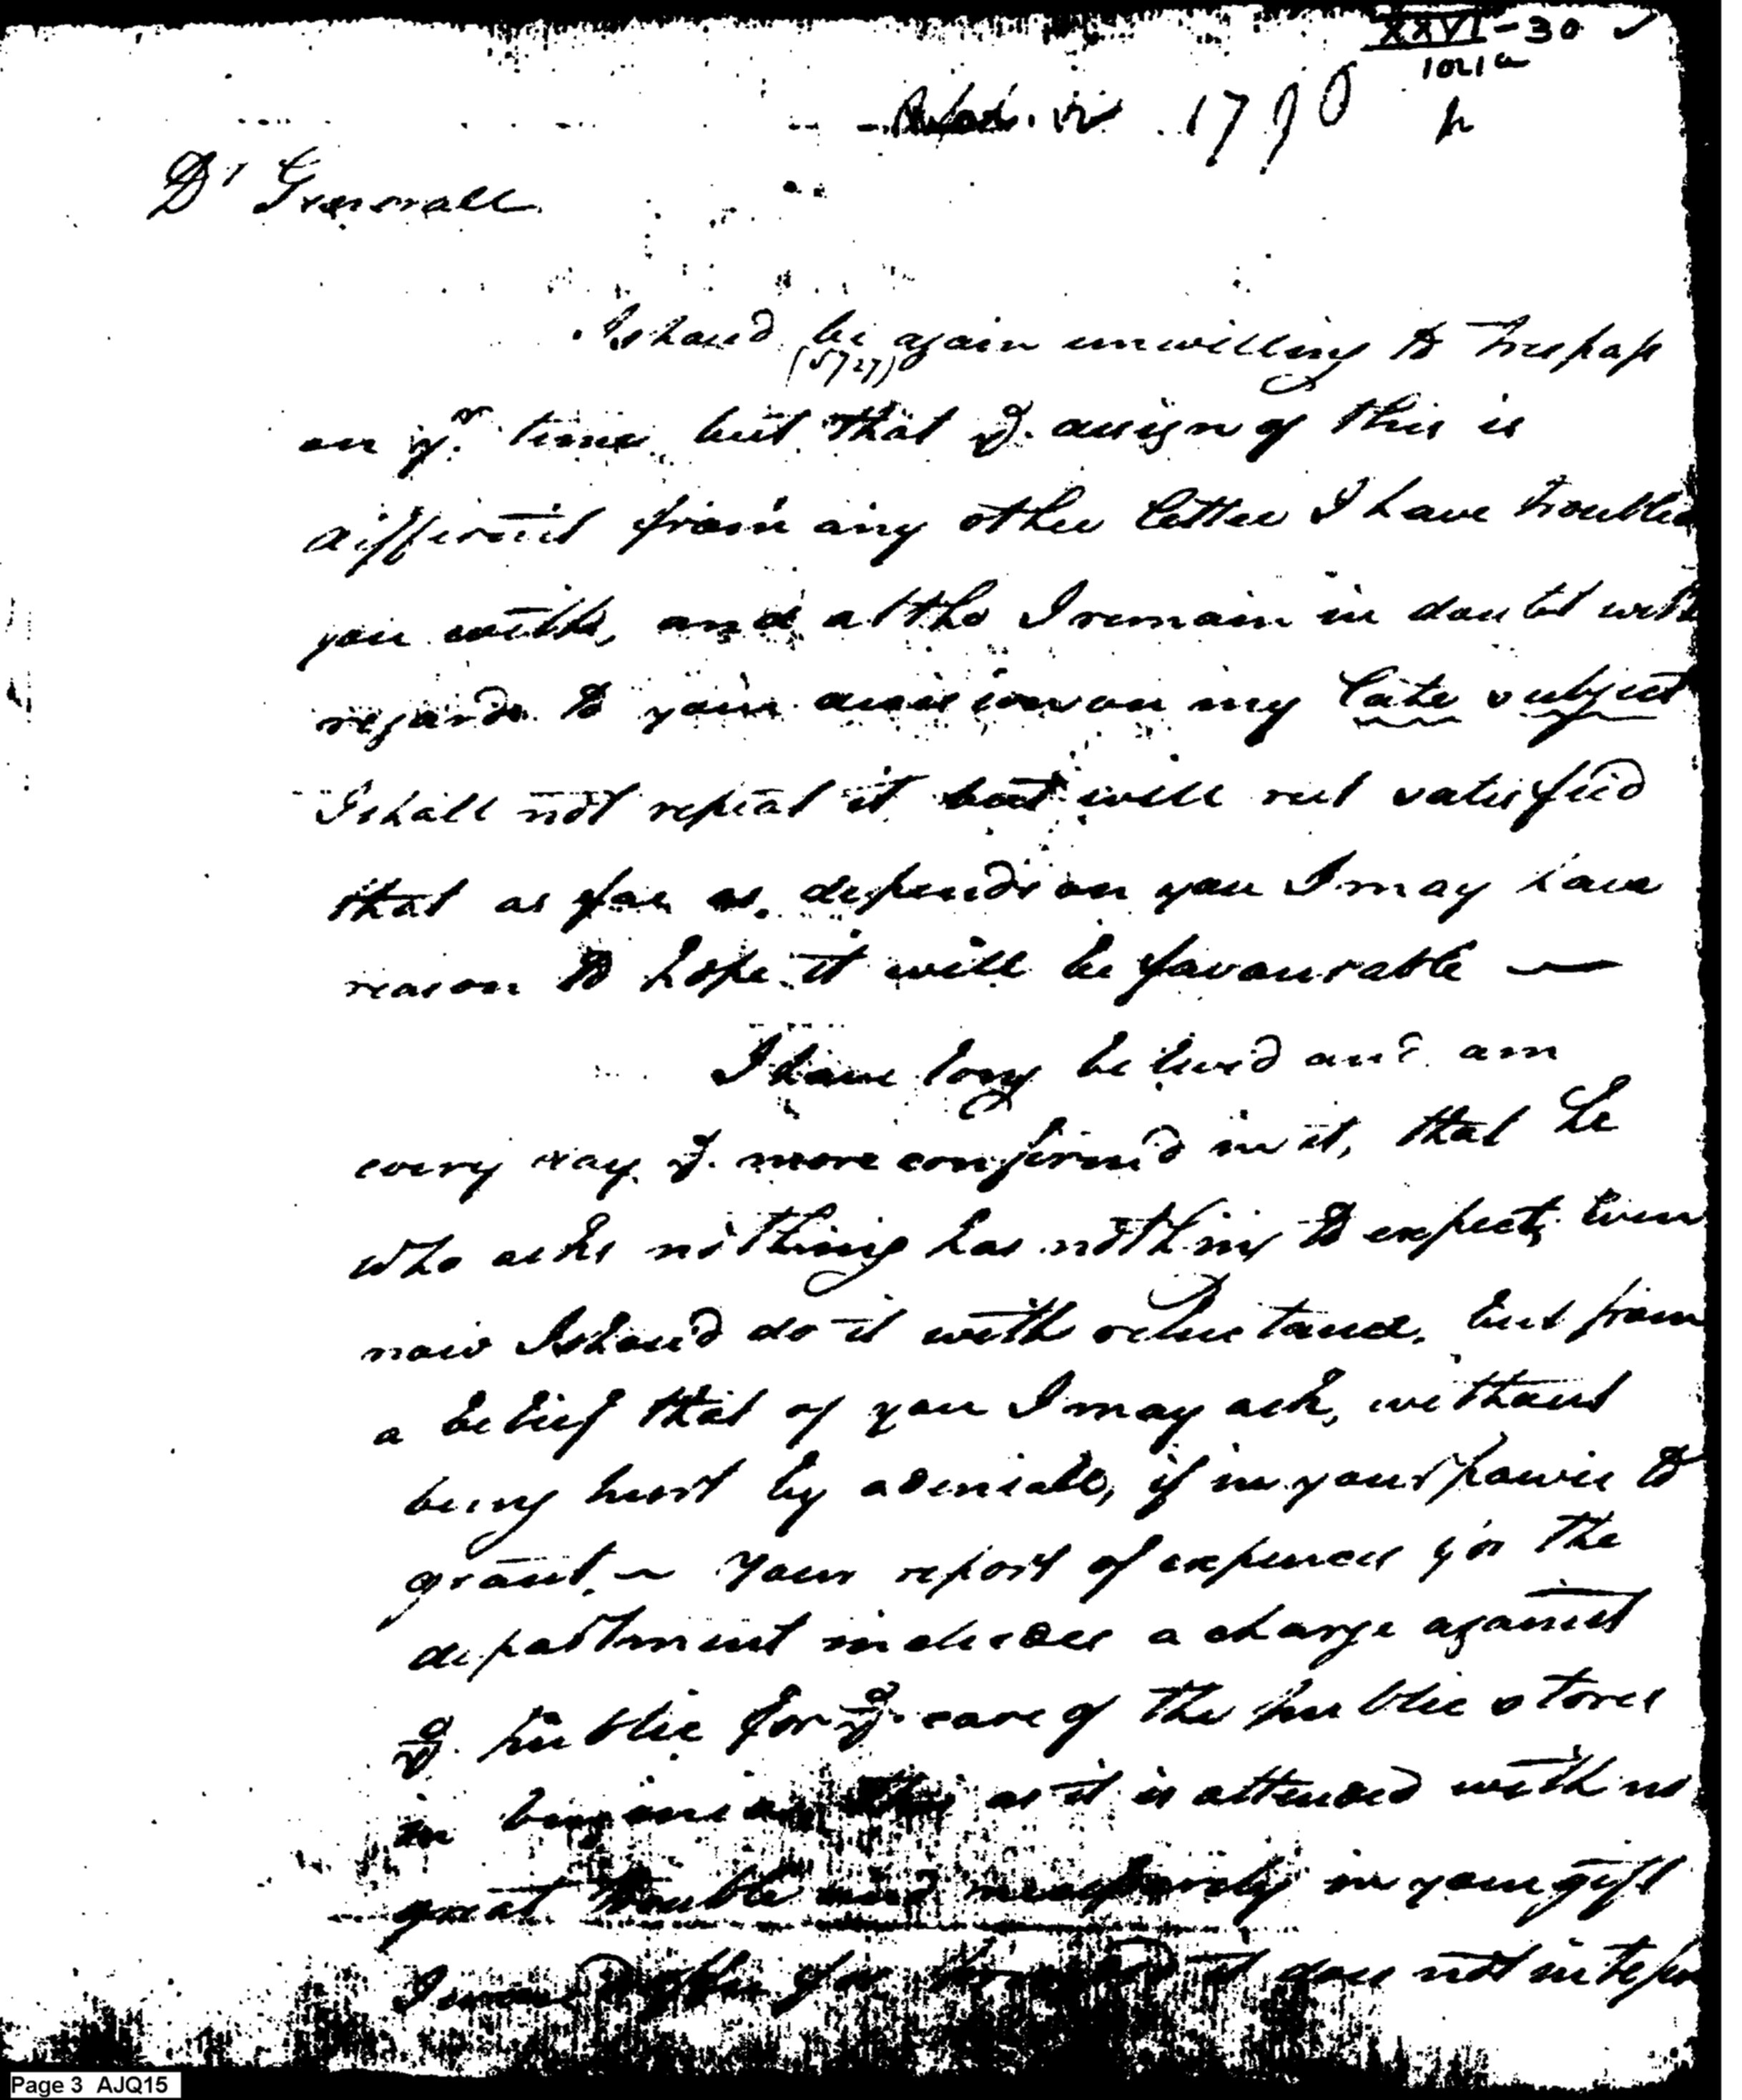 XXVI-30
1021a
1790
Dr Generall
I shou'd be again unwilling to trespass
(5/27)
on yr. time but that ye. design of this is
different from any other letter I have troubled
you with, and altho I remain in doubt with
regards to your decision on my late subject
I shall not repeat it but will rest satisfied
that as far as depends on you I may have
reason to hope it will be favourable —
I have long believ'd and am
every day ye. more confirm'd in it, that he
who asks nothing has nothing to expect, Even
now I shou'd do it with reluctance, but from
a belief that of you I may ask, without
being hurt by a deniall, if in your power to
grant — Your report of expences for the
department includes a charge against
ye. public for ye. care of the public stores
in as it is attended with no
great trouble and in your gift
I for it does not interfe
Page 3 AJQ15